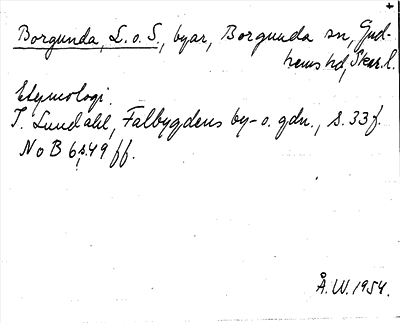 Borgunda, L. o. S., byar, Borgunda sn, Gud-
hems hd, Skar. l.
Etymologi.
I. Lundahl, Falbygdens by- o. gdn., s. 33 f.
NoB 6 s. 49 ff.
Å. W. 1954.